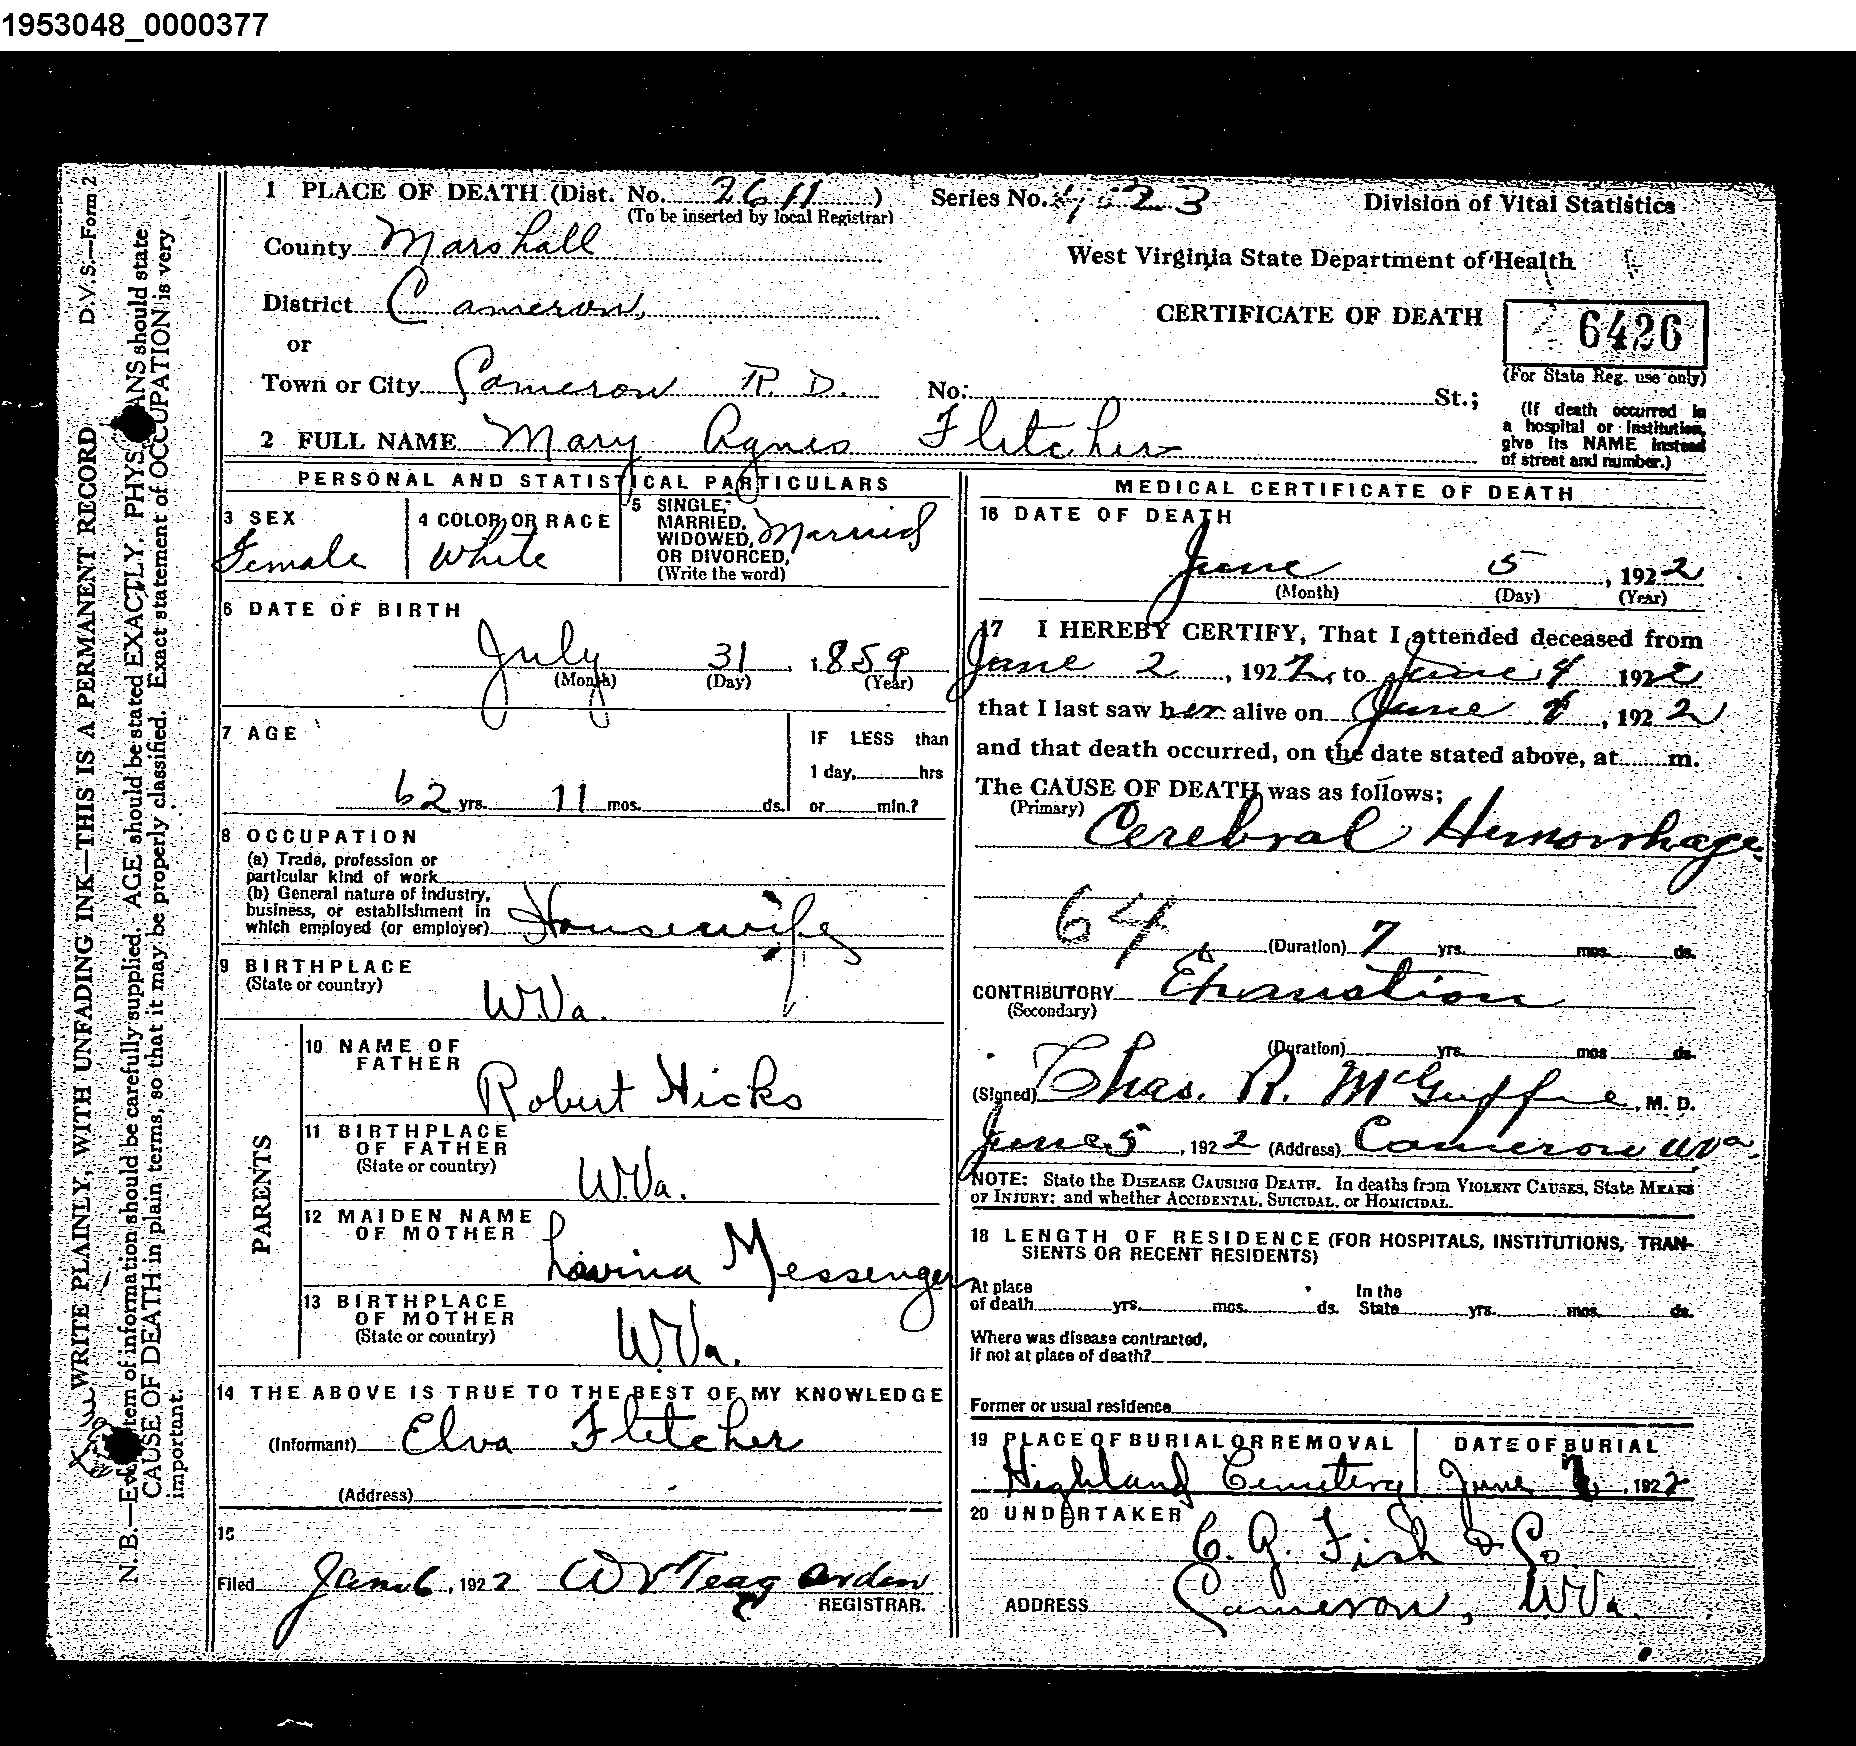 1953048_0000377
1 PLACE OF DEATH (Dist. No. 2611) Series No. 23 Division of Vital Statistics
(To be inserted by local Registrar)
County Marshall
West Virginia State Department of Health
District Cameron,
CERTIFICATE OF DEATH 6426
or
Town or City Cameron R. D. No. St.; (For State Reg. use only)
(If death occurred in a hospital or institution, give its NAME instead of street and number.)
2 FULL NAME Mary Agnes Fletcher
PERSONAL AND STATISTICAL PARTICULARS
3 SEX Female
4 COLOR OR RACE White
5 SINGLE, MARRIED, WIDOWED, OR DIVORCED, (Write the word) Married
6 DATE OF BIRTH
July 31, 1859
(Month) (Day) (Year)
7 AGE
62 yrs. 11 mos. ds.
IF LESS than
1 day, hrs
or min.?
8 OCCUPATION
(a) Trade, profession or
particular kind of work
(b) General nature of industry,
business, or establishment in
which employed (or employer) Housewife
9 BIRTHPLACE
(State or country) W.Va.
PARENTS
10 NAME OF
FATHER Robert Hicks
11 BIRTHPLACE
OF FATHER
(State or country) W.Va.
12 MAIDEN NAME
OF MOTHER Lavina Messenger
13 BIRTHPLACE
OF MOTHER
(State or country) W.Va.
14 THE ABOVE IS TRUE TO THE BEST OF MY KNOWLEDGE
(Informant) Elva Fletcher
(Address)
15
Filed June 6, 1922 W V Teagarden
REGISTRAR.
MEDICAL CERTIFICATE OF DEATH
16 DATE OF DEATH
June 5, 1922
(Month) (Day) (Year)
17 I HEREBY CERTIFY, That I attended deceased from
June 2, 1922, to June 4 1922
that I last saw her alive on June 4, 1922
and that death occurred, on the date stated above, at m.
The CAUSE OF DEATH was as follows:
(Primary) Cerebral Hemorrhage
64 (Duration) 7 yrs. mos. ds.
CONTRIBUTORY
(Secondary)
(Duration) yrs. mos ds.
(Signed) Chas. R. McGuffie, M. D.
June 5, 1922 (Address) Cameron W Va.
NOTE: State the DISEASE CAUSING DEATH. In deaths from VIOLENT CAUSES, State MEANS
OF INJURY; and whether ACCIDENTAL, SUICIDAL, or HOMICIDAL.
18 LENGTH OF RESIDENCE (FOR HOSPITALS, INSTITUTIONS, TRAN-
SIENTS OR RECENT RESIDENTS)
At place
of death yrs. mos. ds.
In the
State yrs. mos. ds.
Where was disease contracted,
If not at place of death?
Former or usual residence
19 PLACE OF BURIAL OR REMOVAL DATE OF BURIAL
Highland Cemetery June , 1922
20 UNDERTAKER C. G. Fish & Co.
ADDRESS Cameron, W.Va.
D.V.S.—Form 2
WRITE PLAINLY, WITH UNFADING INK—THIS IS A PERMANENT RECORD
N. B.—Every item of information should be carefully supplied. AGE should be stated EXACTLY. PHYSICIANS should state
CAUSE OF DEATH in plain terms, so that it may be properly classified. Exact statement of OCCUPATION is very
important.